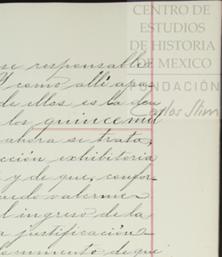 CENTRO DE
ESTUDIOS
DE HISTORIA
DE MEXICO
FUNDACIÓN
Carlos Slim
se responsable
Y como allí apa-
de ellos es la deu
los quince mil
ahora se trata,
cción exhibitoria
y de que, confor-
uedo valerme
l ingreso de la
a justificación
ocumento de que